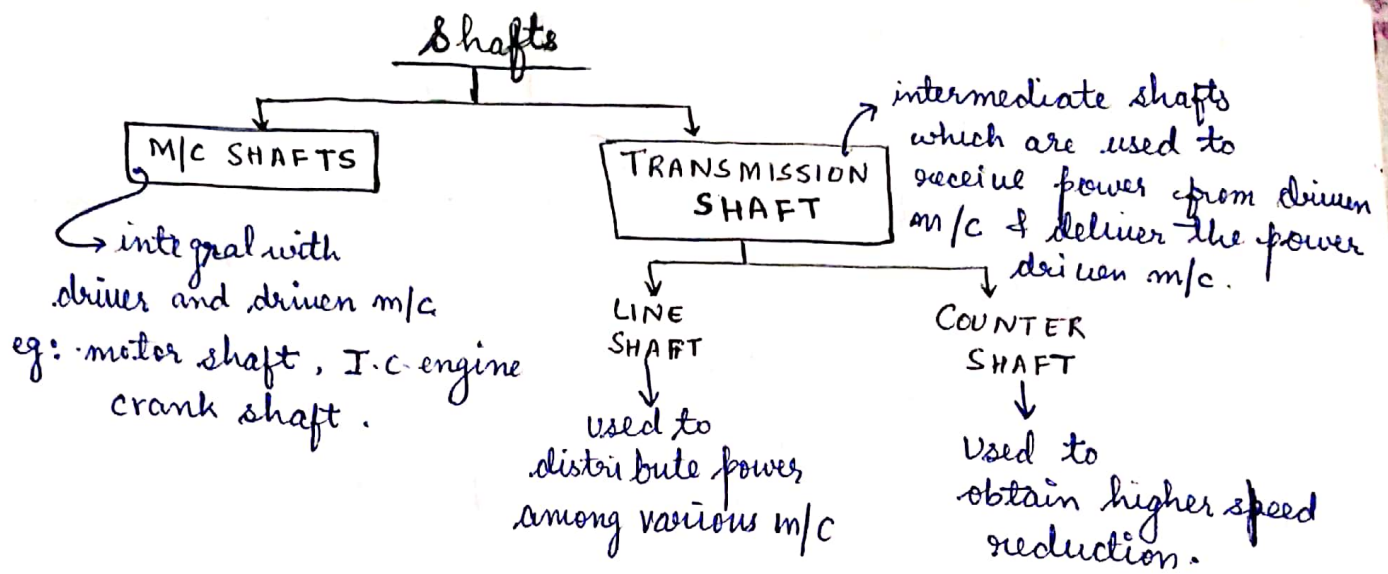 Shafts
M/C SHAFTS
integral with
driver and driven m/c
eg: motor shaft, I.C. engine
crank shaft.
TRANSMISSION
SHAFT
intermediate shafts
which are used to
receive power from driven
m/c & deliver the power
driven m/c.
LINE
SHAFT
used to
distribute power
among various m/c
COUNTER
SHAFT
Used to
obtain higher speed
reduction.